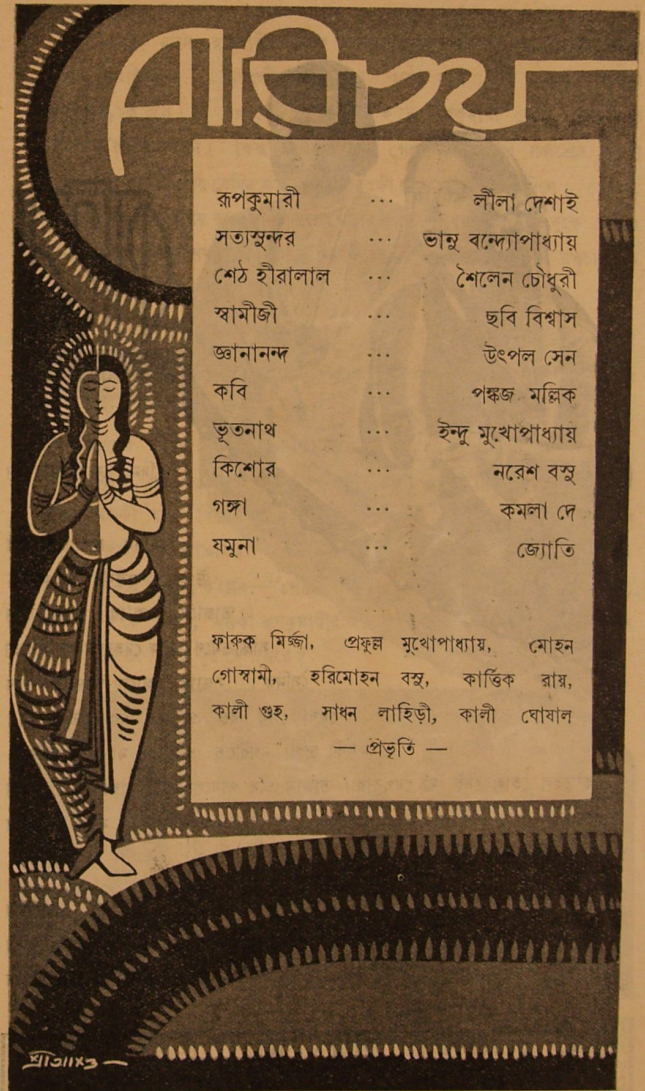 পরিচয়
রূপকুমারী ... লীলা দেশাই
সত্যসুন্দর ... ভানু বন্দ্যোপাধ্যায়
শেঠ হীরালাল ... শৈলেন চৌধুরী
স্বামীজী ... ছবি বিশ্বাস
জ্ঞানানন্দ ... উৎপল সেন
কবি ... পঙ্কজ মল্লিক
ভূতনাথ ... ইন্দু মুখোপাধ্যায়
কিশোর ... নরেশ বসু
গঙ্গা ... কমলা দে
যমুনা ... জ্যোতি
ফারুক মির্জ্জা, প্রফুল্ল মুখোপাধ্যায়, মোহন
গোস্বামী, হরিমোহন বসু, কার্ত্তিক রায়,
কালী গুহ, সাধন লাহিড়ী, কালী ঘোষাল
— প্রভৃতি —